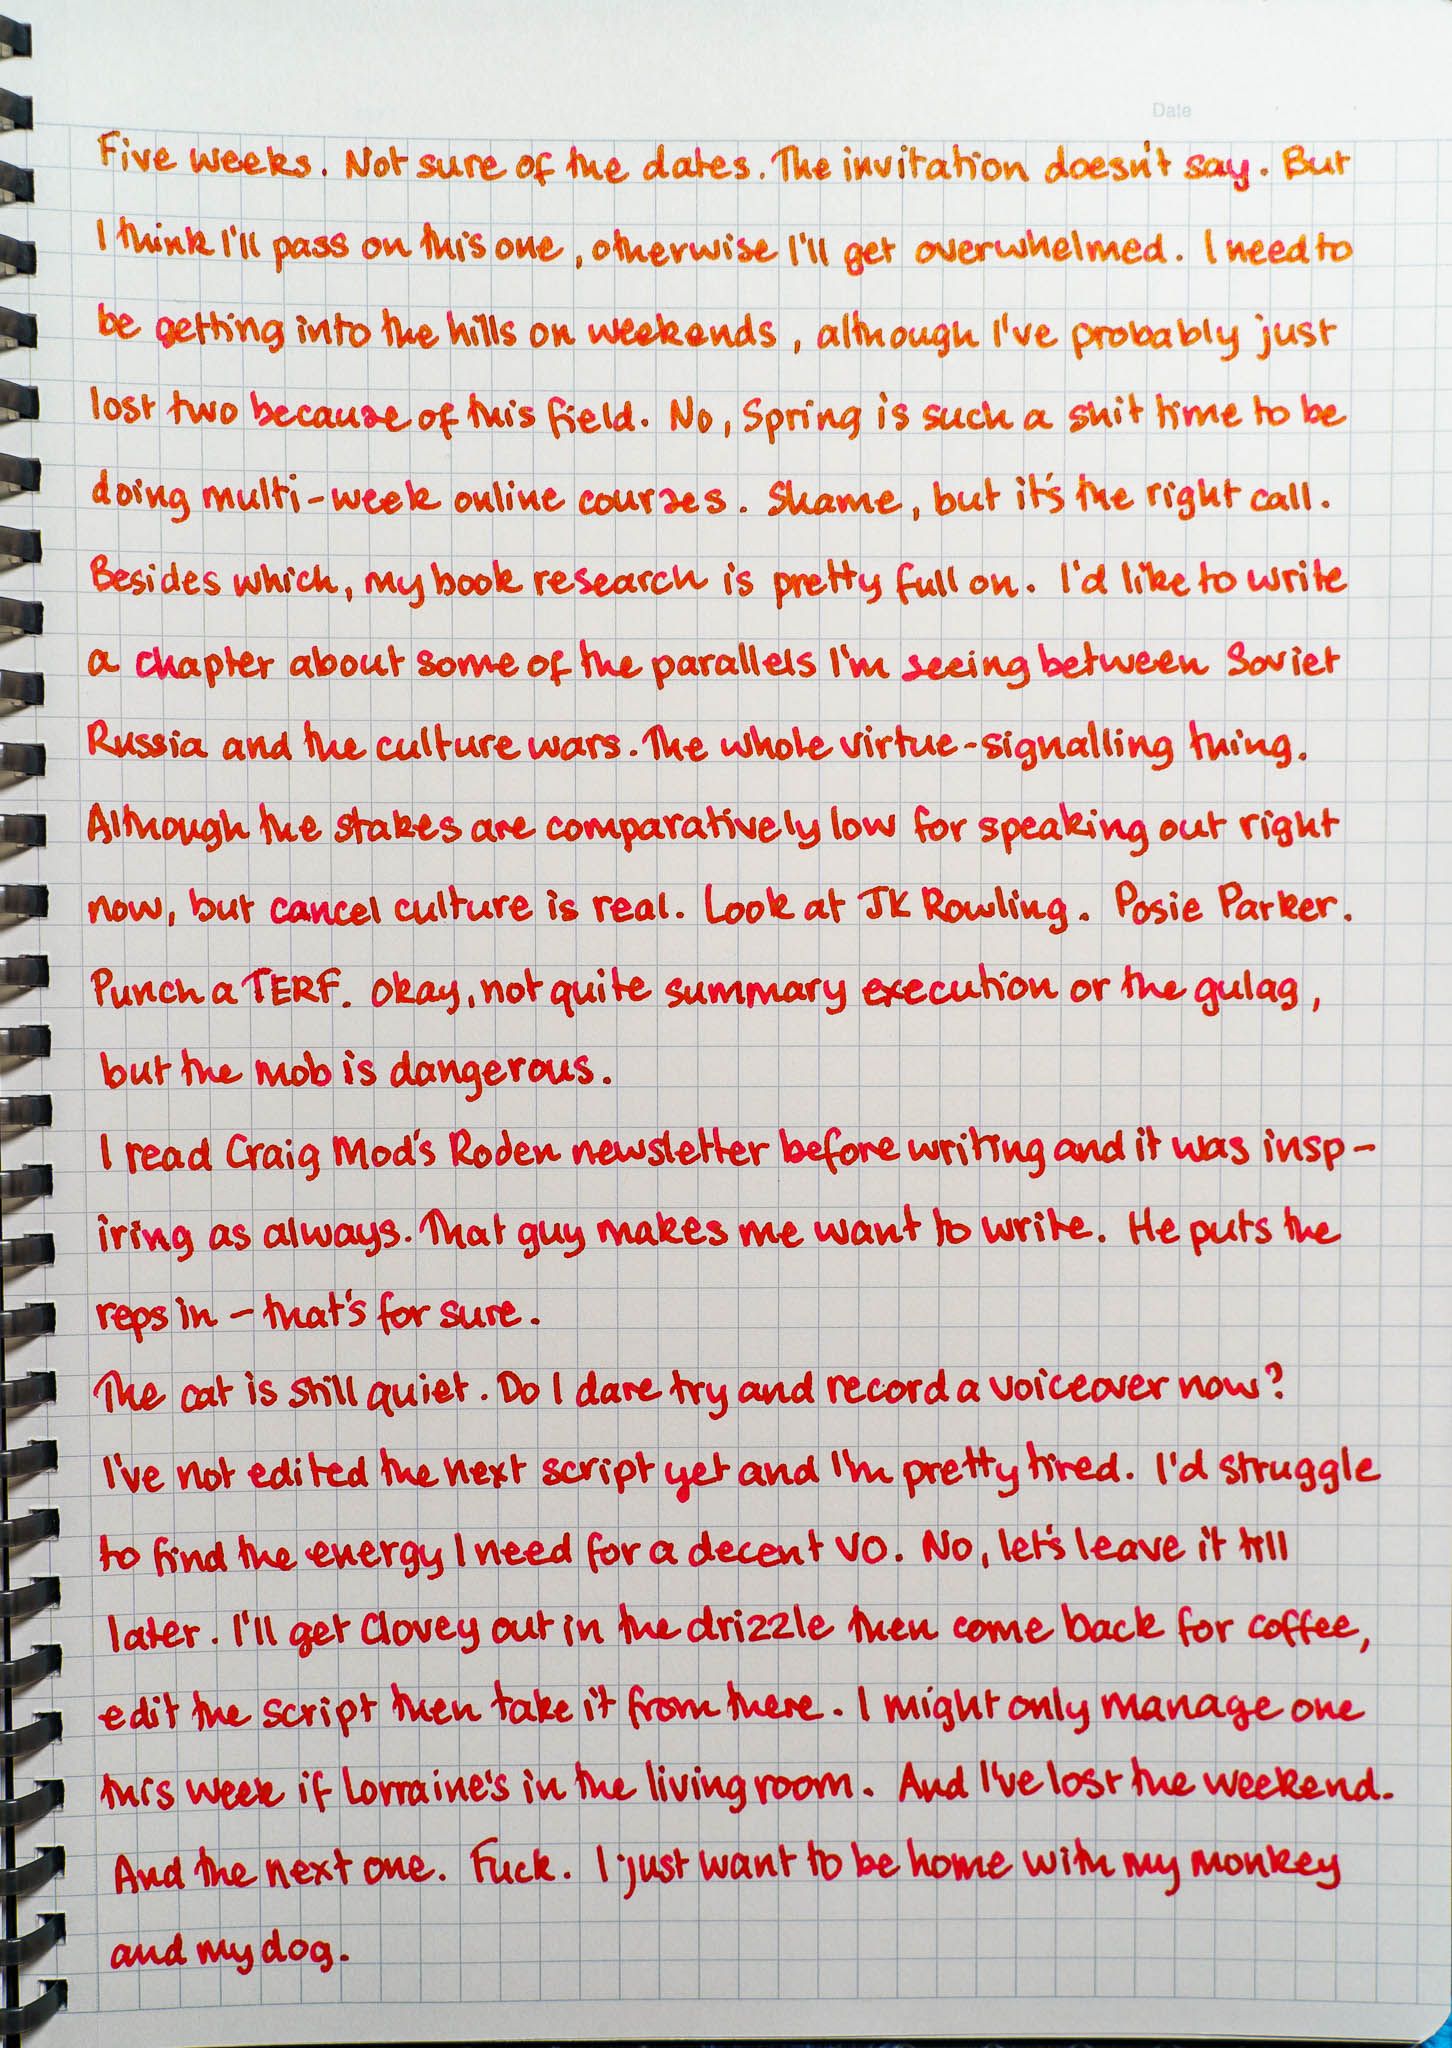 Date
Five weeks. Not sure of the dates. The invitation doesn't say. But
I think I'll pass on this one, otherwise I'll get overwhelmed. I need to
be getting into the hills on weekends, although I've probably just
lost two because of this field. No, Spring is such a shit time to be
doing multi-week online courses. Shame, but it's the right call.
Besides which, my book research is pretty full on. I'd like to write
a chapter about some of the parallels I'm seeing between Soviet
Russia and the culture wars. The whole virtue-signalling thing.
Although the stakes are comparatively low for speaking out right
now, but cancel culture is real. Look at JK Rowling. Posie Parker.
Punch a TERF. Okay, not quite summary execution or the gulag,
but the mob is dangerous.
I read Craig Mod's Roden newsletter before writing and it was insp-
iring as always. That guy makes me want to write. He puts the
reps in - that's for sure.
The cat is still quiet. Do I dare try and record a voiceover now?
I've not edited the next script yet and I'm pretty tired. I'd struggle
to find the energy I need for a decent VO. No, let's leave it till
later. I'll get Clovey out in the drizzle then come back for coffee,
edit the script then take it from there. I might only manage one
this week if Lorraine's in the living room. And I've lost the weekend.
And the next one. Fuck. I just want to be home with my monkey
and my dog.